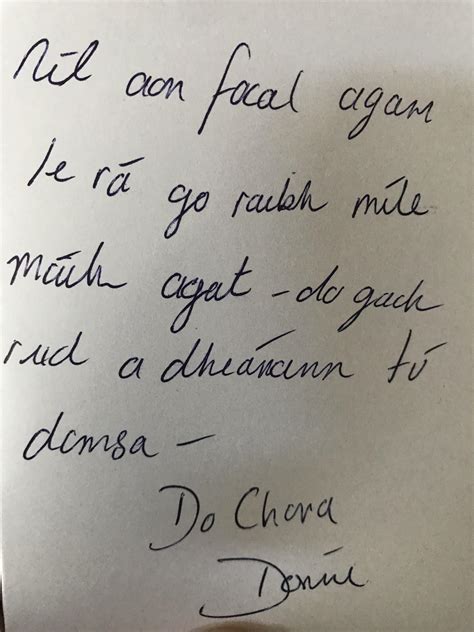 Níl aon focal agam
le rá go raibh míle
máith agat - do gach
rud a dheánann tú
domsa -
Do Chara